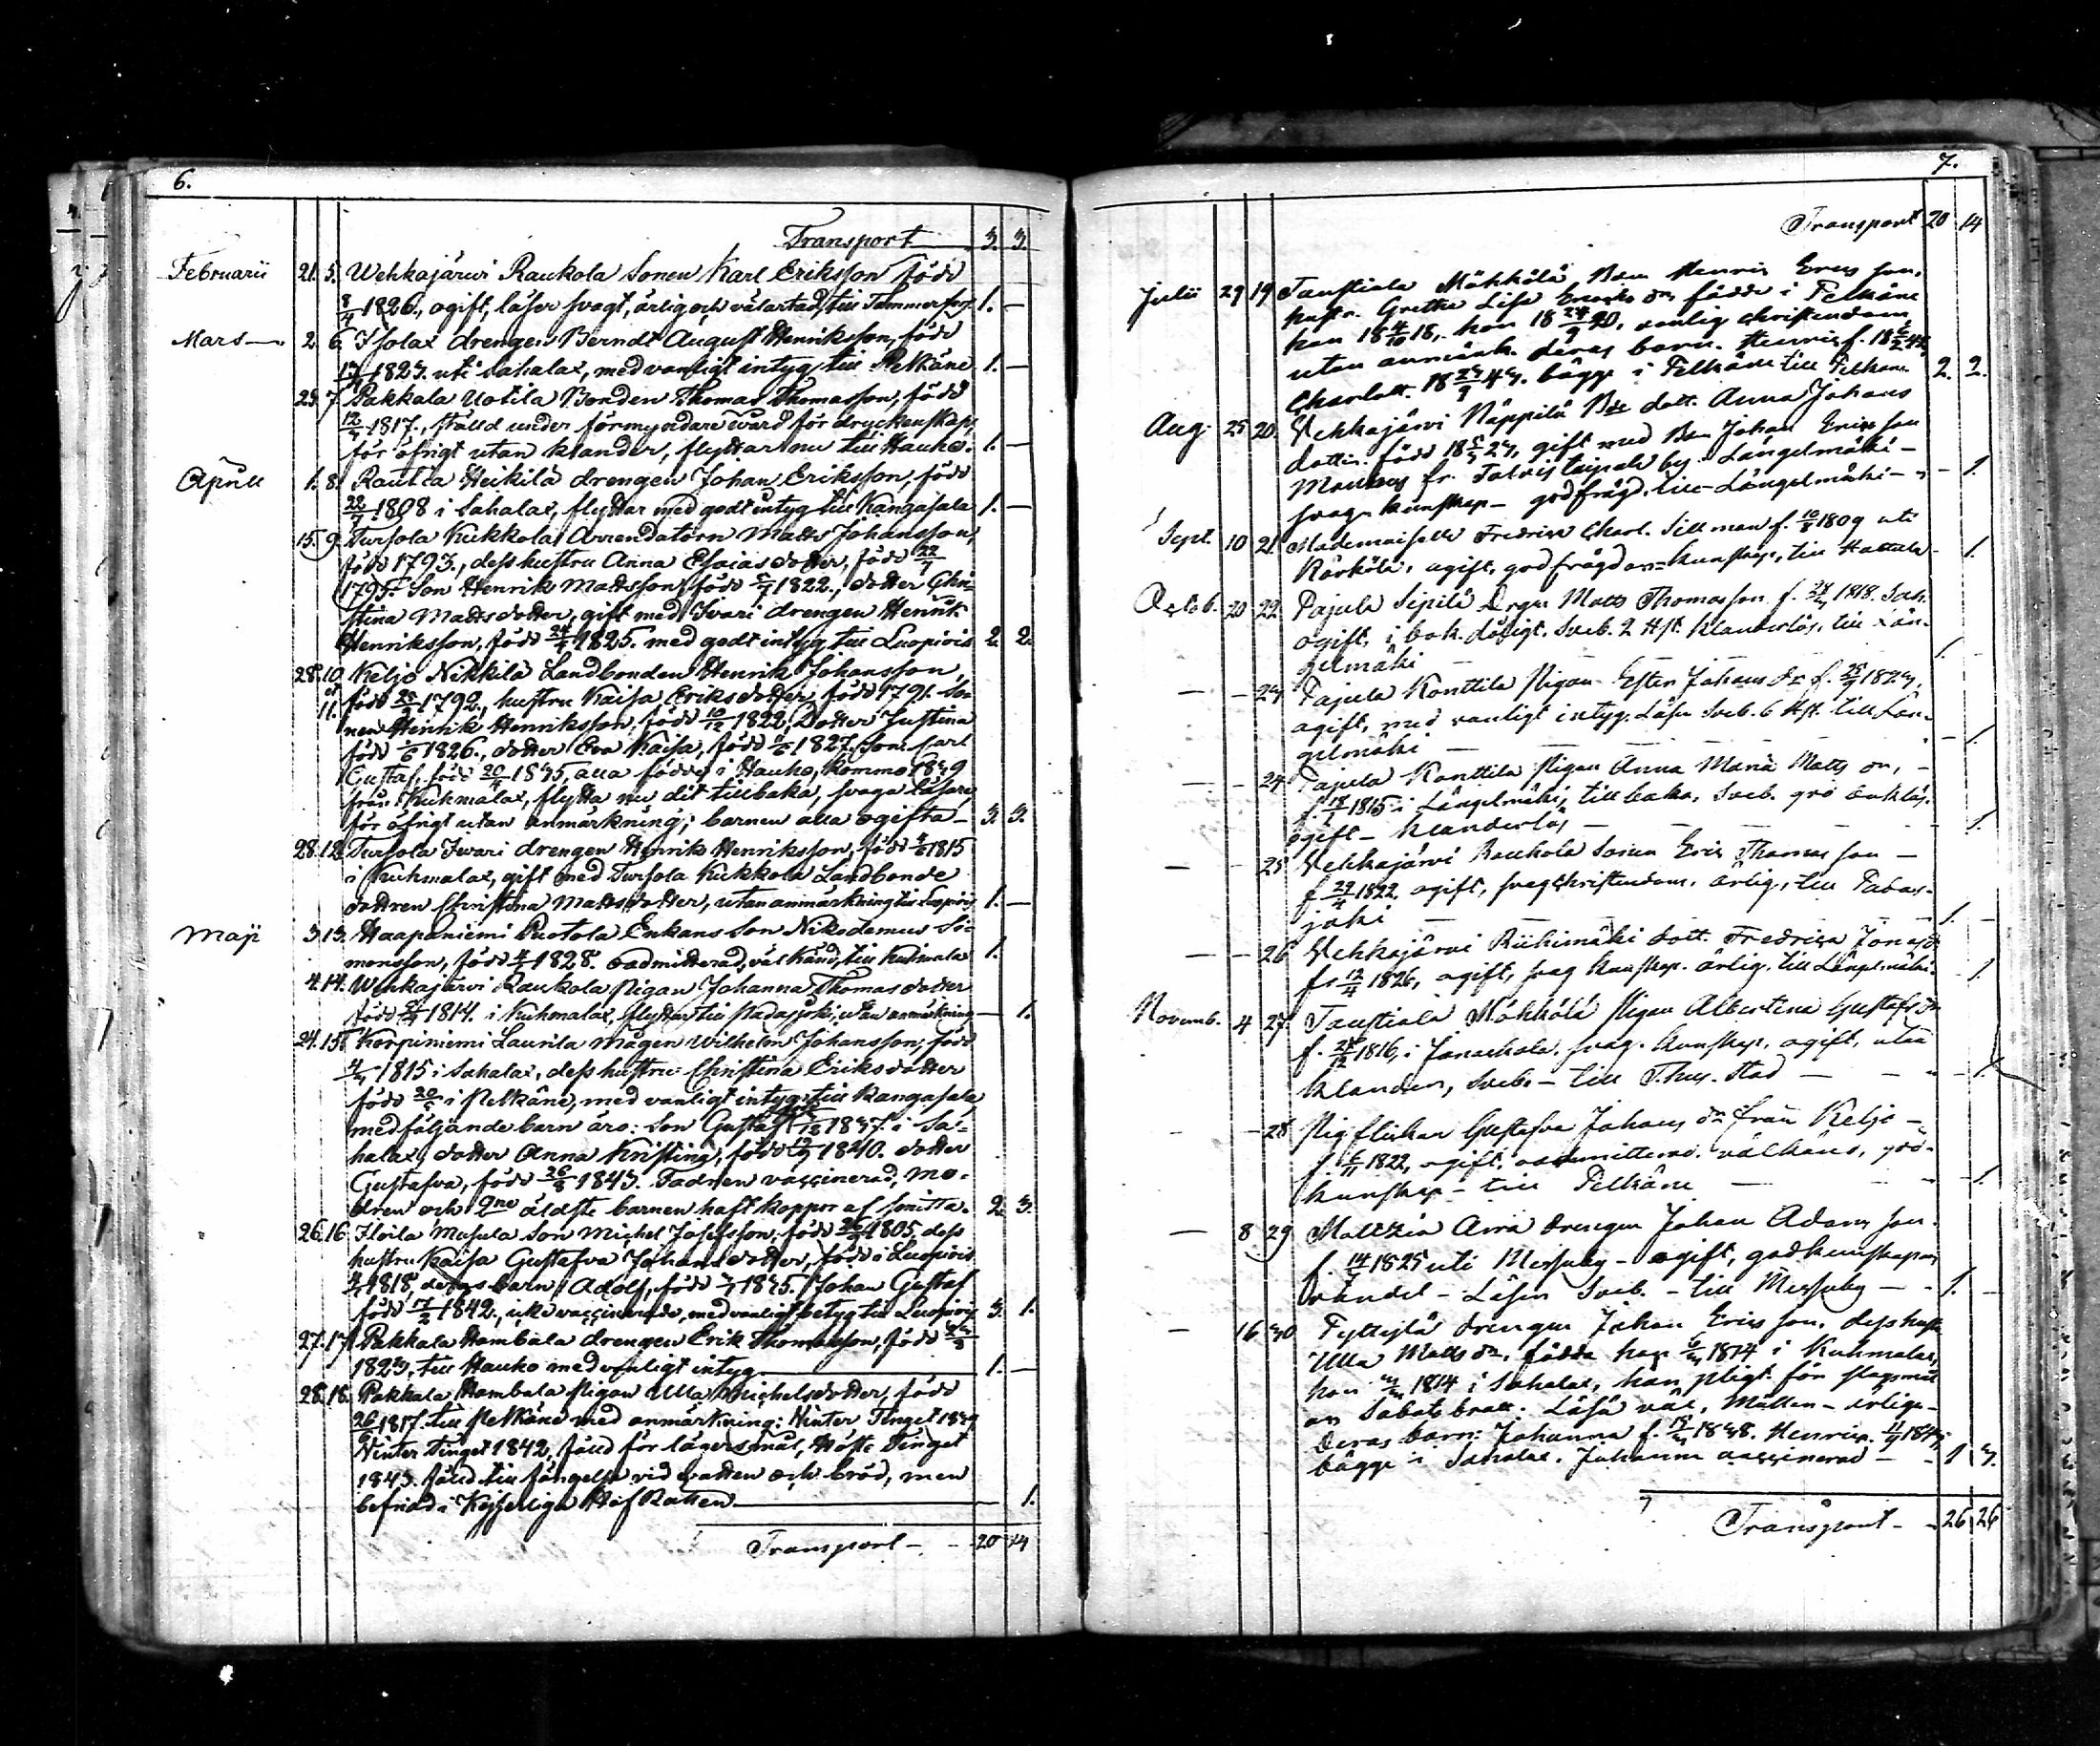 6.
Transport 3. 3.
Februarii 21. 5. Wehkajärwi Raukola Sonen Karl Eriksson född
8/4 1826., ogift, läser svagt, ärlig och välartad, till Tammerfors. 1. —
Mars — 2. 6. Isolax drengen Berndt August Henriksson, född
1823. uti Sahalax, med vanligt intyg till Pelkäne 1. —
23. 7. Pakkala Uotila Bonden Thomas Thomasson, född
1817., ställd under förmyndare vård för dryckenskap,
för öfrigt utan klander, flyttar nu till Hauho. 1. —
Aprill 1. 8. Rautia Heikilä drengen Johan Eriksson, född
22/7 1808 i Sahalax, flyttar med godt intyg till Kangasala 1. —
15. 9. Tursola Kukkola Arrendatorn Matts Johansson,
född 1793., dess hustru Anna Esaias dotter, född
1795. Son Henrik Mattsson född 1822., dotter Chri-
stina Mattsdotter, gift med Iwari drengen Henrik
Henriksson, född 1825. med godt intyg till Luopiois 2. 2.
28. 10 Keljo Nikkilä Landbonden Henrik Johansson,
et 11. född 1792., hustru Kaisa Eriksdotter, född 1791. So-
nen Henrik Henriksson, född 10/12 1822, Dotter Justina
född 1826., dotter Eva Kaisa, född 1827. Son Carl
Gustaf, född 1835, alla födde i Hauho, kommo 1839
från Kuhmalax, flytta nu dit tillbaka, svaga läsare,
för öfrigt utan anmärkning; barnen alla ogifta — 3. 3.
28. 12. Tursola Iwari drengen Henrik Henriksson, född 1815
i Kuhmalax, gift med Tursola Kukkola Landbonde
dottren Christina Mattsdotter, utan anmärkning till Luopiois 1. —
Maji 3. 13. Haapaniemi Puotola Enkans Son Nikodemus Si-
monsson, född 1828. oadmitterad, väl känd, till Kuhmalax 1.
4. 14. Wehkajärvi Raukola Pigan Johanna Thomasdotter
född 1814. i Kuhmalax, flyttar till Padasjoki, utan anmärkning — 1.
24. 15. Korpiniemi Laurila mågen Wilhelm Johansson, född
1815 i Sahalax, dess hustru Christina Eriksdotter
född i Pelkäne, med vanligt intyg till Kangasala
medföljande barn äro: Son Gustaf 1837. i Sa-
halax, dotter Anna Kristina, född 1840. dotter
Gustafva, född 26/8 1843. Fadren vaccinerad, mo-
dren och 2ne äldste barnen haft koppor af smitta. 2. 3.
26. 16 Iloila Musula Son Michel Josefsson, född 1805, dess
hustru Kaisa Gustafva Johansdotter, född i Luopiois
1818, deras barn: Adolf, född 1835. Johan Gustaf
född 17/2 1842., icke vaccinerade, med vanligt betyg till Luopiois 3. 1.
27. 17. Pakkala Hambala drengen Erik Thomasson, född
1823, till Hauho med vanligt intyg 1. —
28. 18. Pakkala Hambala Pigan Ulla Michelsdotter, född
1817. till Pelkäne med anmärkning: Winter Tinget 1839
Winter Tinget 1842, fälld för lägersmål, Höste Tinget
1843. fälld till fängelse vid vatten och bröd, men
befriad i Kejserliga Hof Rätten 1.
Transport — 20 14
7.
Transport 20 14
Julii 29 19 Taustiala Mökkölä Bon Henric Ericsson,
hustr. Gretha Lisa Ericks dr, födde i Pelkäne
han 18 4/10 18, hon 18 24/9 20, vanlig christendom
utan anmärk. deras barn. Henric f. 18 42,
Charlott. 18 43. bägge i Pelkäne till Pelkäne 2. 2.
Aug. 25 20. Vehkajärvi Näppilä Bde dott. Anna Johans
dotter. född 18 23, gift med Bon Johan Ericsson
by Längelmäki —
svag kunskap — god frägd. till Längelmäki — 1.
Sept. 10 21. Mademoiselle Fredrica Charl. Sillman f. 1809 uti
Kärkölä, ogift, god frägd och kunskap, till Hattula — 1.
Octob. 20 22. Pajula Sipilä Drgn Matts Thomasson f. 1818. Sah.
ogift, i bok. dåligt. Sveb. 2 Hst. Klanderlös, till Län-
gelmäki 1.
— — 23 Pajula Konttila Pigan Ester Johans dr f. 1823,
ogift, med vanligt intyg. Läser Sveb. 6 Hst. till Län-
gelmäki — 1.
— — 24 Pajula Konttila Pigan Anna Maria Matts dr, —
f. 1815 i Längelmäki, tillbaka, Sveb.
ogift — Klanderlös — 1.
— — 25 Vehkajärvi Raukola Sonen Eric Thomasson —
f. 1822, ogift, svag christendom. ärlig, till Padas-
joki 1. —
— — 26 Vehkajärvi Riihimäki dott. Fredrica Jonasdr
f. 12/4 1826, ogift, svag kunskap. ärlig. till Längelmäki. 1
Novemb. 4 27. Taustiala Mökkölä Pigan Albertina Gustafs dr
f. 1816, i Janackala. svag kunskap, ogift, utan
klander, Sveb. — till T.hus. Stad — 1.
— — 28 Pigflickan Gustafva Johans dr från Keljo —
f. 6/11 1822, ogift, oadmitterad. välkänd, god
kunskap — till Pelkäne — 1.
— 8 29 drengen Johan Adamsson.
f. 14/7 1825 uti Messuby — ogift, god kunskap och
vandel — Läser Sveb. — till Messuby — 1. —
— 16 30 drengen Johan Ericsson, dess hustr
Ulla Matts dr, födda han 1814 i Kuhmalax,
hon 1814 i Sahalax, han pligt för slagsmål
och Sabatsbrott. Läsa väl, — ärliga —
Deras barn: Johanna f. 1838. Henric. 1843,
bägge i Sahalax. Johanna vaccinerad — 1 3.
Transport — 26 26